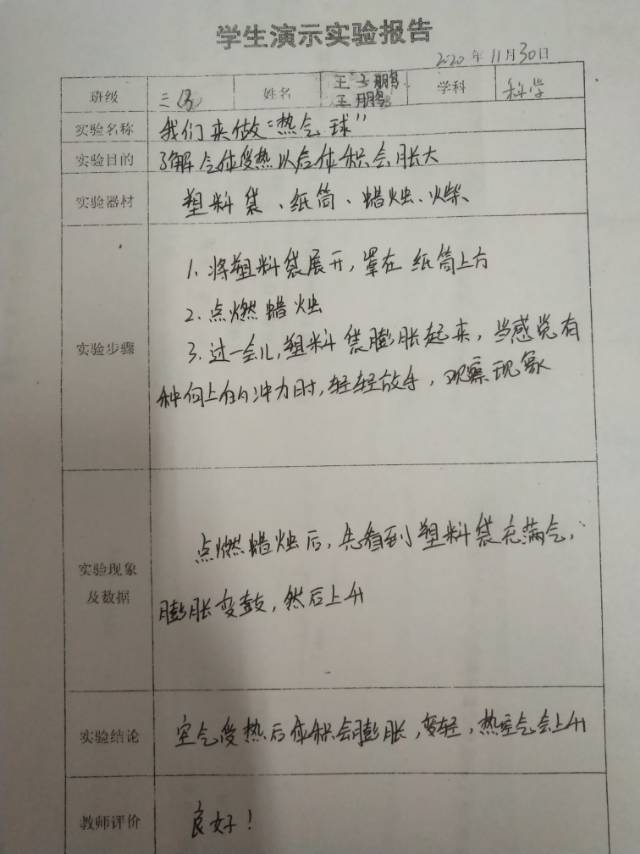 学生演示实验报告
2020年11月30日
班级 三(5) 姓名 王子鹏 王鹏 学科 科学
实验名称 我们来做“热气球”
实验目的 了解气体受热以后体积会胀大
实验器材 塑料袋、纸筒、蜡烛、火柴、
1. 将塑料袋展开,罩在纸筒上方
2. 点燃蜡烛
实验步骤 3. 过一会儿,塑料袋膨胀起来,当感觉有
种向上的冲力时,轻轻放手,观察现象
点燃蜡烛后,先看到塑料袋充满气,
实验现象
及数据 膨胀变鼓,然后上升
实验结论 空气受热后体积会膨胀,变轻,热空气会上升
教师评价 良好!